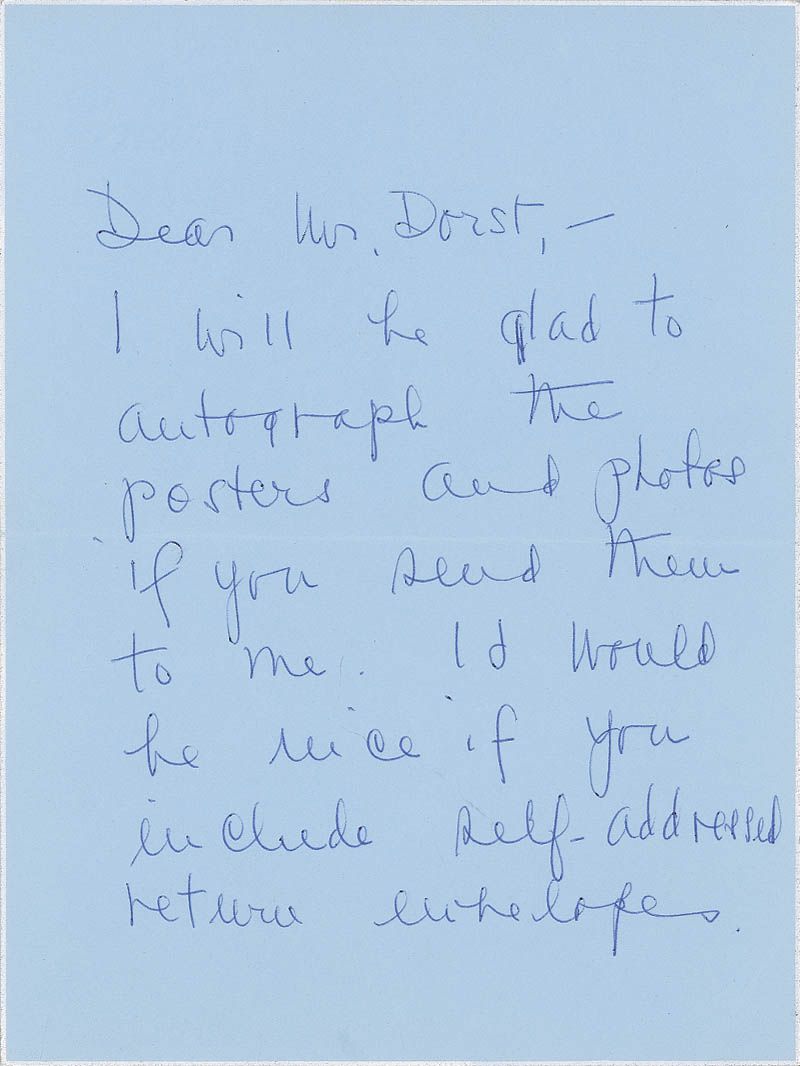 Dear Mr. Dorst, —
I will be glad to
autograph the
posters and photos
if you send them
to me. Id would
be nice if you
include self-addressed
return envelopes.